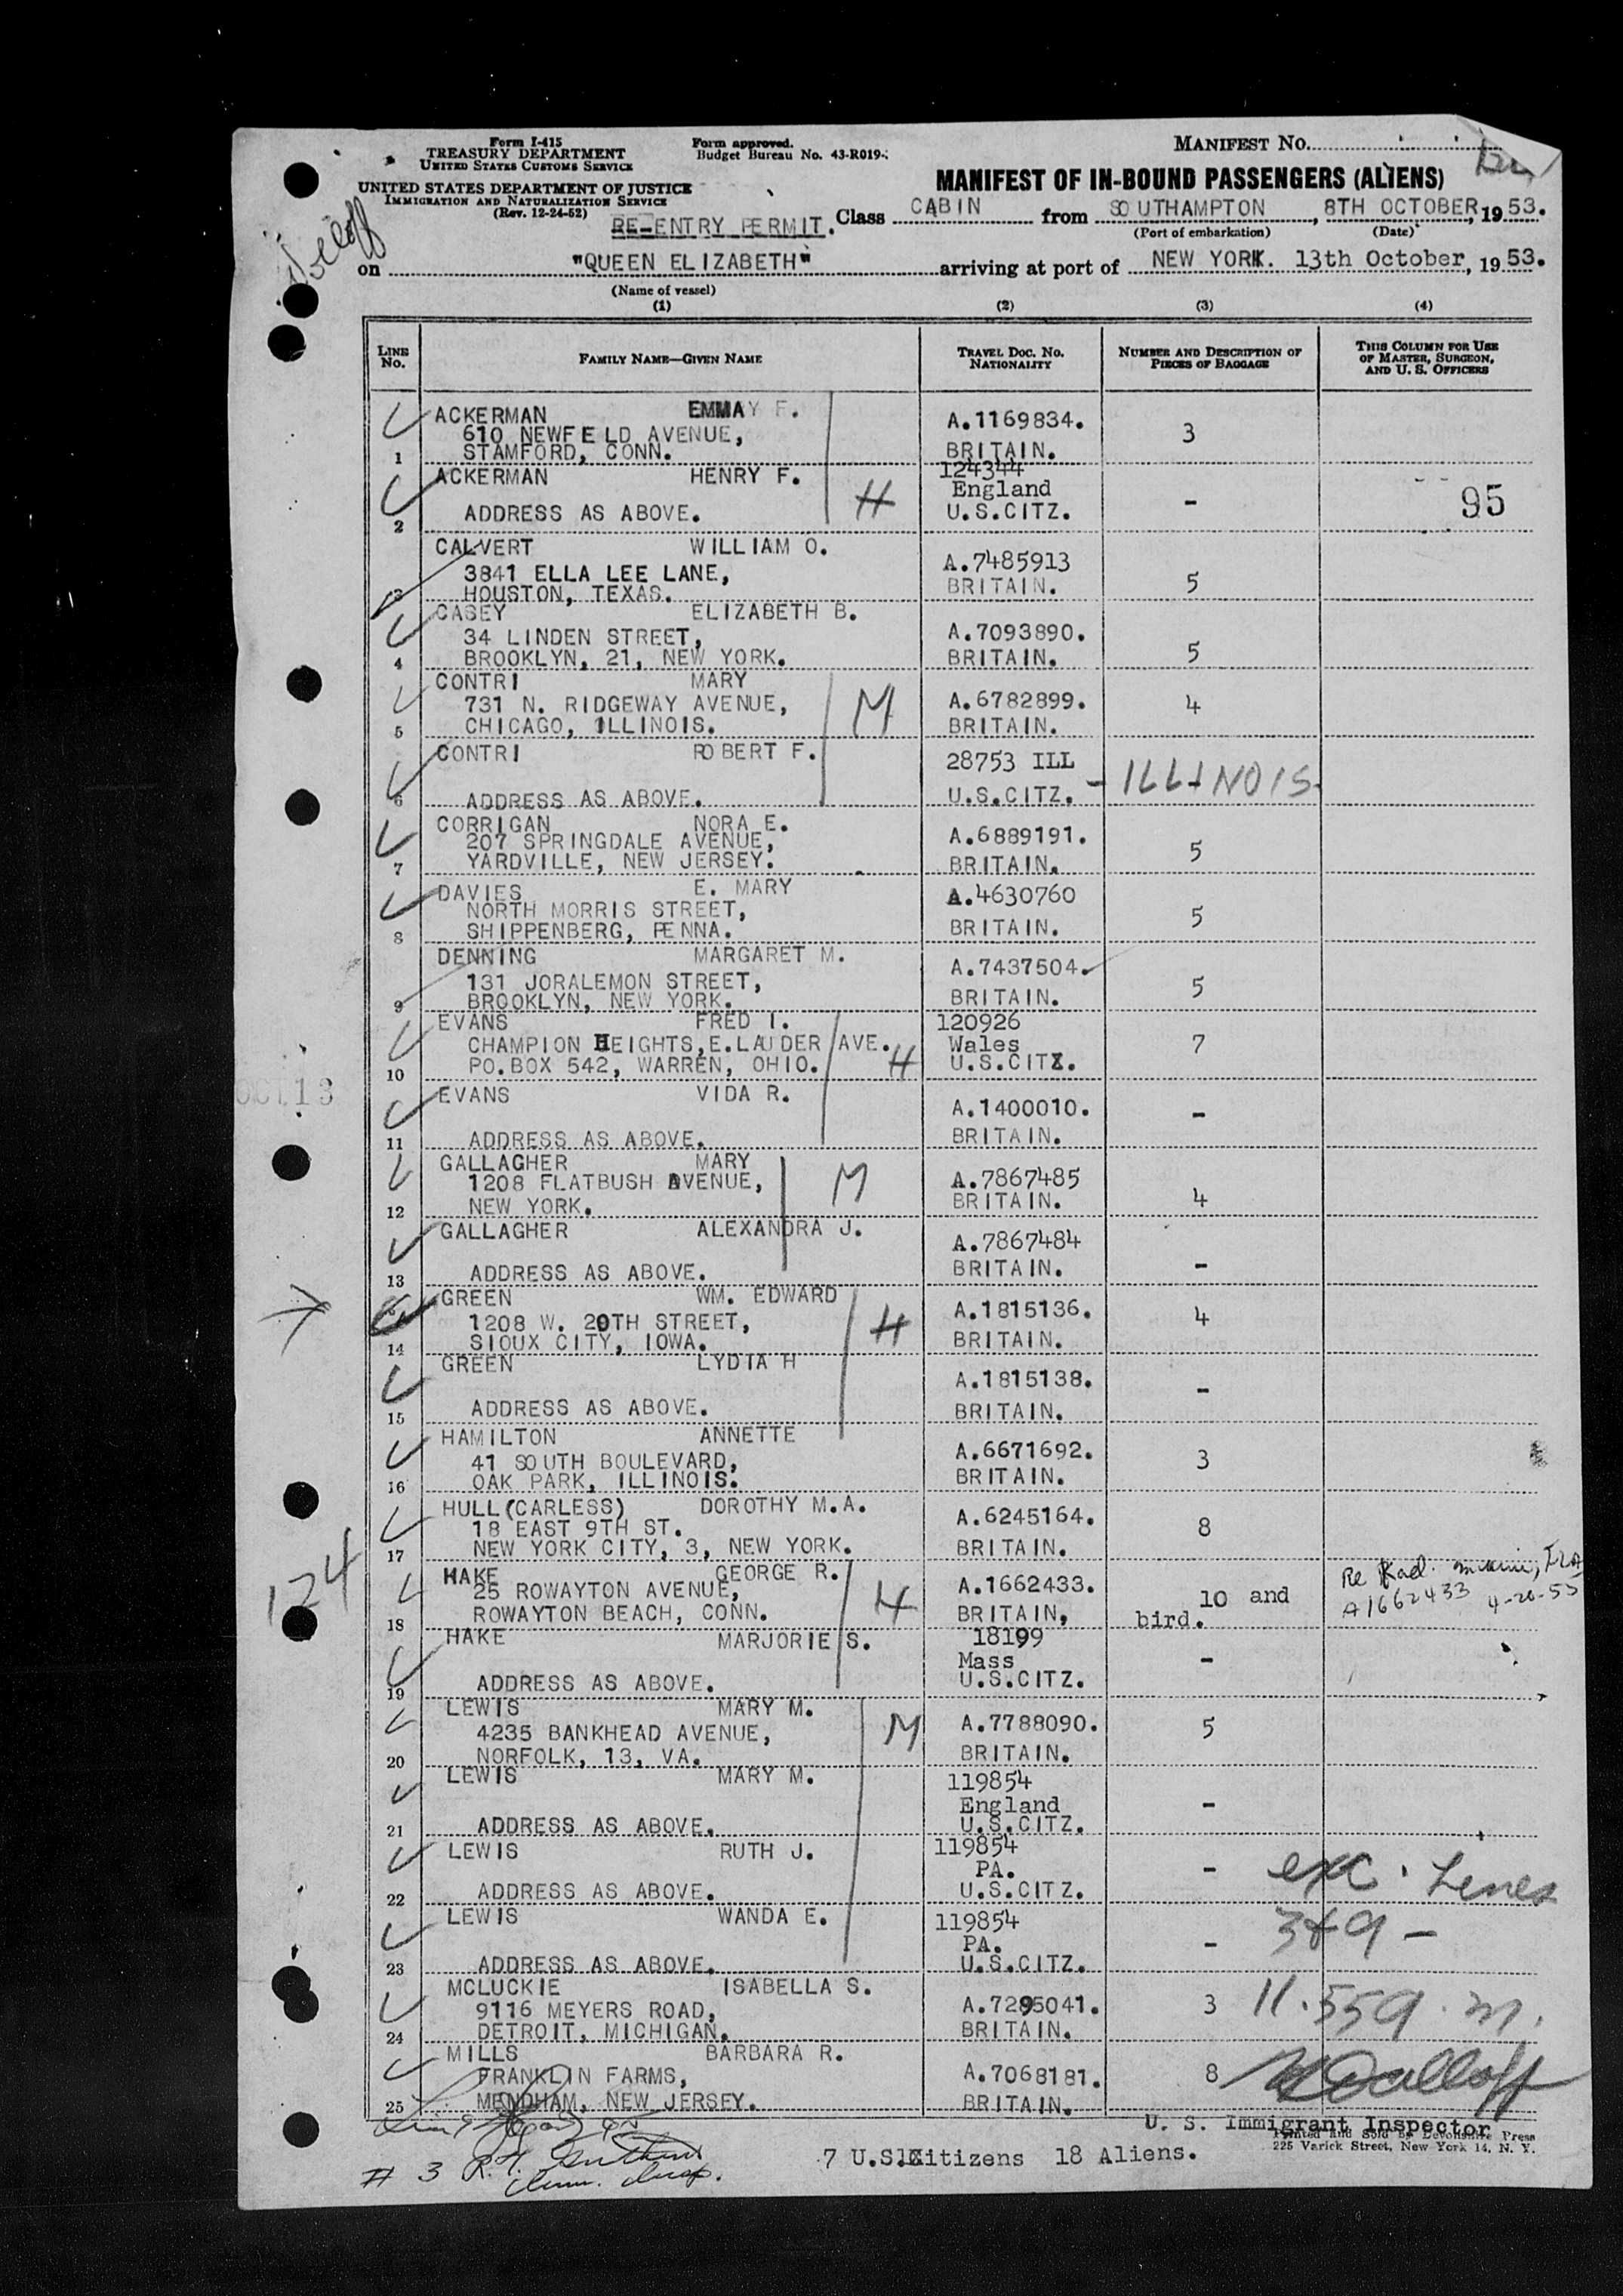 Form I-415
TREASURY DEPARTMENT
UNITED STATES CUSTOMS SERVICE
UNITED STATES DEPARTMENT OF JUSTICE
IMMIGRATION AND NATURALIZATION SERVICE
(Rev. 12-24-52)
Form approved.
Budget Bureau No. 43-R019-
MANIFEST NO.
MANIFEST OF IN-BOUND PASSENGERS (ALIENS)
RE-ENTRY PERMIT. Class CABIN from SOUTHAMPTON, 8TH OCTOBER, 19 53.
(Port of embarkation) (Date)
on "QUEEN ELIZABETH" arriving at port of NEW YORK. 13th October, 19 53.
(Name of vessel)
(1) (2) (3) (4)
LINE NO. FAMILY NAME—GIVEN NAME TRAVEL DOC. NO. NATIONALITY NUMBER AND DESCRIPTION OF PIECES OF BAGGAGE THIS COLUMN FOR USE OF MASTER, SURGEON, AND U. S. OFFICERS
ACKERMAN EMMAY F. A.1169834.
610 NEWFELD AVENUE, 3
1 STAMFORD, CONN. BRITAIN.
ACKERMAN HENRY F. 124344
H England - 95
2 ADDRESS AS ABOVE. U.S.CITZ.
CALVERT WILLIAM O.
3841 ELLA LEE LANE, A.7485913
3 HOUSTON, TEXAS. BRITAIN. 5
CASEY ELIZABETH B.
34 LINDEN STREET, A.7093890.
4 BROOKLYN, 21, NEW YORK. BRITAIN. 5
CONTRI MARY
731 N. RIDGEWAY AVENUE, M A.6782899. 4
5 CHICAGO, ILLINOIS. BRITAIN.
CONTRI ROBERT F. 28753 ILL
6 ADDRESS AS ABOVE. U.S.CITZ. - ILLINOIS.
CORRIGAN NORA E.
207 SPRINGDALE AVENUE, A.6889191.
7 YARDVILLE, NEW JERSEY. BRITAIN. 5
DAVIES E. MARY A.4630760
NORTH MORRIS STREET, 5
8 SHIPPENBERG, PENNA. BRITAIN.
DENNING MARGARET M. A.7437504.
131 JORALEMON STREET, 5
9 BROOKLYN, NEW YORK. BRITAIN.
EVANS FRED I. 120926
CHAMPION HEIGHTS,E.LAUDER AVE. Wales 7
10 PO.BOX 542, WARREN, OHIO. H U.S.CITZ.
EVANS VIDA R. A.1400010. -
11 ADDRESS AS ABOVE. BRITAIN.
GALLAGHER MARY
1208 FLATBUSH AVENUE, M A.7867485
12 NEW YORK. BRITAIN. 4
GALLAGHER ALEXANDRA J. A.7867484
13 ADDRESS AS ABOVE. BRITAIN. -
GREEN WM. EDWARD
1208 W. 20TH STREET, H A.1815136. 4
14 SIOUX CITY, IOWA. BRITAIN.
GREEN LYDIA H A.1815138. -
15 ADDRESS AS ABOVE. BRITAIN.
HAMILTON ANNETTE
41 SOUTH BOULEVARD, A.6671692. 3
16 OAK PARK, ILLINOIS. BRITAIN.
HULL(CARLESS) DOROTHY M.A.
18 EAST 9TH ST. A.6245164. 8
17 NEW YORK CITY, 3, NEW YORK. BRITAIN.
HAKE GEORGE R.
25 ROWAYTON AVENUE, H A.1662433. 10 and A1662433 4-20-55
18 ROWAYTON BEACH, CONN. BRITAIN, bird.
HAKE MARJORIE S. 18199
Mass -
19 ADDRESS AS ABOVE. U.S.CITZ.
LEWIS MARY M.
4235 BANKHEAD AVENUE, M A.7788090. 5
20 NORFOLK, 13, VA. BRITAIN.
LEWIS MARY M. 119854
England -
21 ADDRESS AS ABOVE. U.S.CITZ.
LEWIS RUTH J. 119854
PA. - exc. Lines
22 ADDRESS AS ABOVE. U.S.CITZ.
LEWIS WANDA E. 119854 3&9 -
PA. -
23 ADDRESS AS ABOVE. U.S.CITZ.
MCLUCKIE ISABELLA S.
9116 MEYERS ROAD, A.7295041. 3
24 DETROIT, MICHIGAN. BRITAIN.
MILLS BARBARA R.
FRANKLIN FARMS, A.7068181. 8
25 MENDHAM, NEW JERSEY. BRITAIN.
U. S. Immigrant Inspector
Printed and Sold by Devonshire Press
225 Varick Street, New York 14, N. Y.
7 U.S.Citizens 18 Aliens.
# 3
OCT 13
124